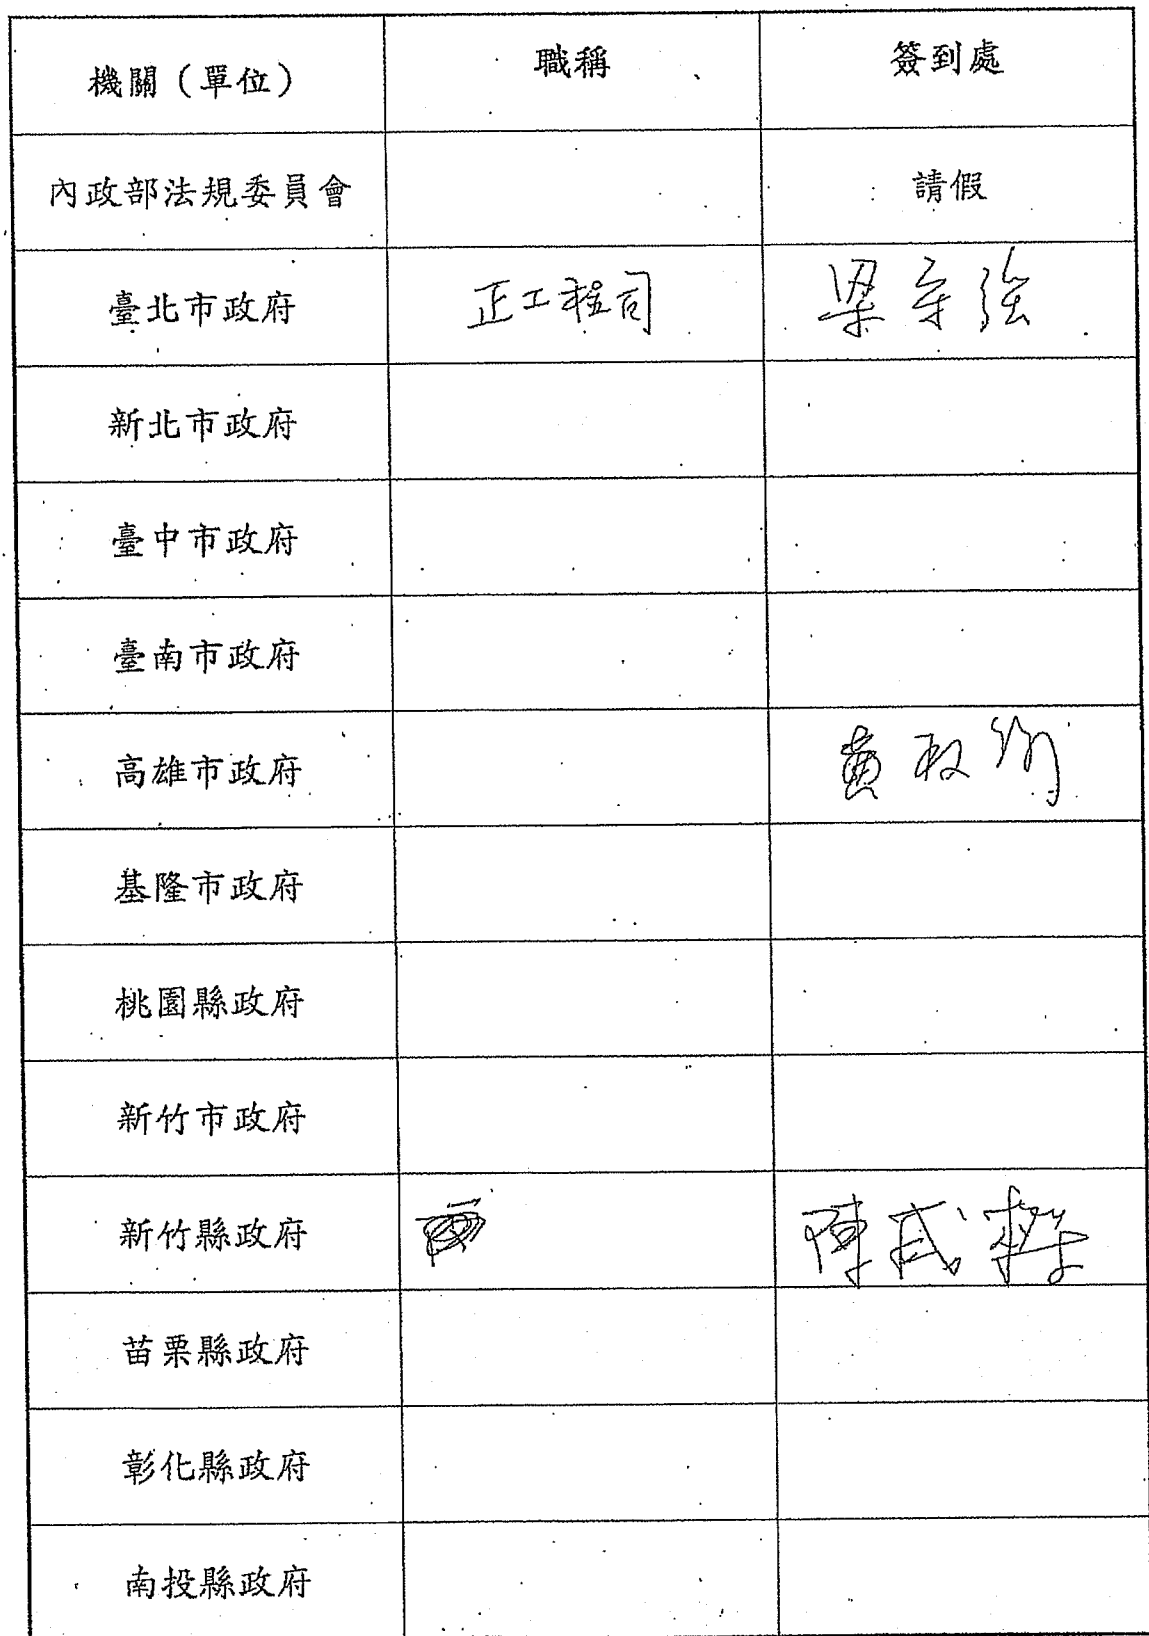 機關（單位） 職稱 簽到處
內政部法規委員會 請假
臺北市政府 正工程司 梁守強
新北市政府
臺中市政府
臺南市政府
高雄市政府 黃政
基隆市政府
桃園縣政府
新竹市政府
新竹縣政府 陳
苗栗縣政府
彰化縣政府
南投縣政府